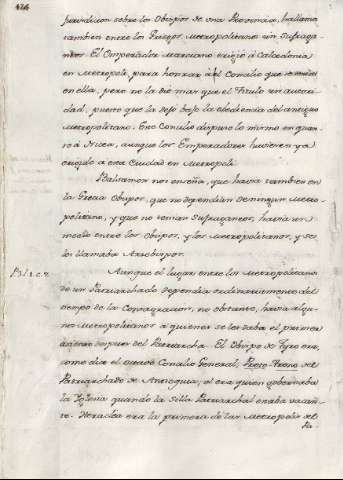 424
jurisdiccion sobre los Obispos de una Provincia, hallamos
tambien entre los Griegos Metropolitanos sin Sufraga-
neos. El Emperador Marciano erigió à Calcedonia
en Metropoli, para honrar àel Concilio que se
en ella, pero no la dio mas que el Titulo sin autori-
dad, puesto que la dejo bajo la obediencia del antiguo
Metropolitano. Este Concilio dispuso lo mismo en quan-
to à Nicea, aunque los Emperadores huviesen ya
erigido a esta Ciudad en Metropoli.
Balsamon nos enseña, que havia tambien en
la Grecia Obispos, que no dependian de ningun Metro-
politano, y que no tenian Sufraganeos, havia un
medio entre los Obispos, y los Metropolitanos, y se
les llamaba Arzobispos.
P. 1. l. 1. c. 7.
Aunque el lugar entre los Metropolitanos
de un Patriarchado dependia ordinariamente del
tiempo de la Consagracion, no obstante, havia algu-
nos Metropolitanos à quienes se les daba el primer
asiento despues del Patriarcha. El Obispo de Tyro era,
como dice el octavo Concilio General, Proto-Trono del
Patriarchado de Antioquia, el era quien gobernaba
la Yglesia quando la Silla Patriarchal estaba vacan-
te. Heraclea era la primera de las Metropolis del
Pa-